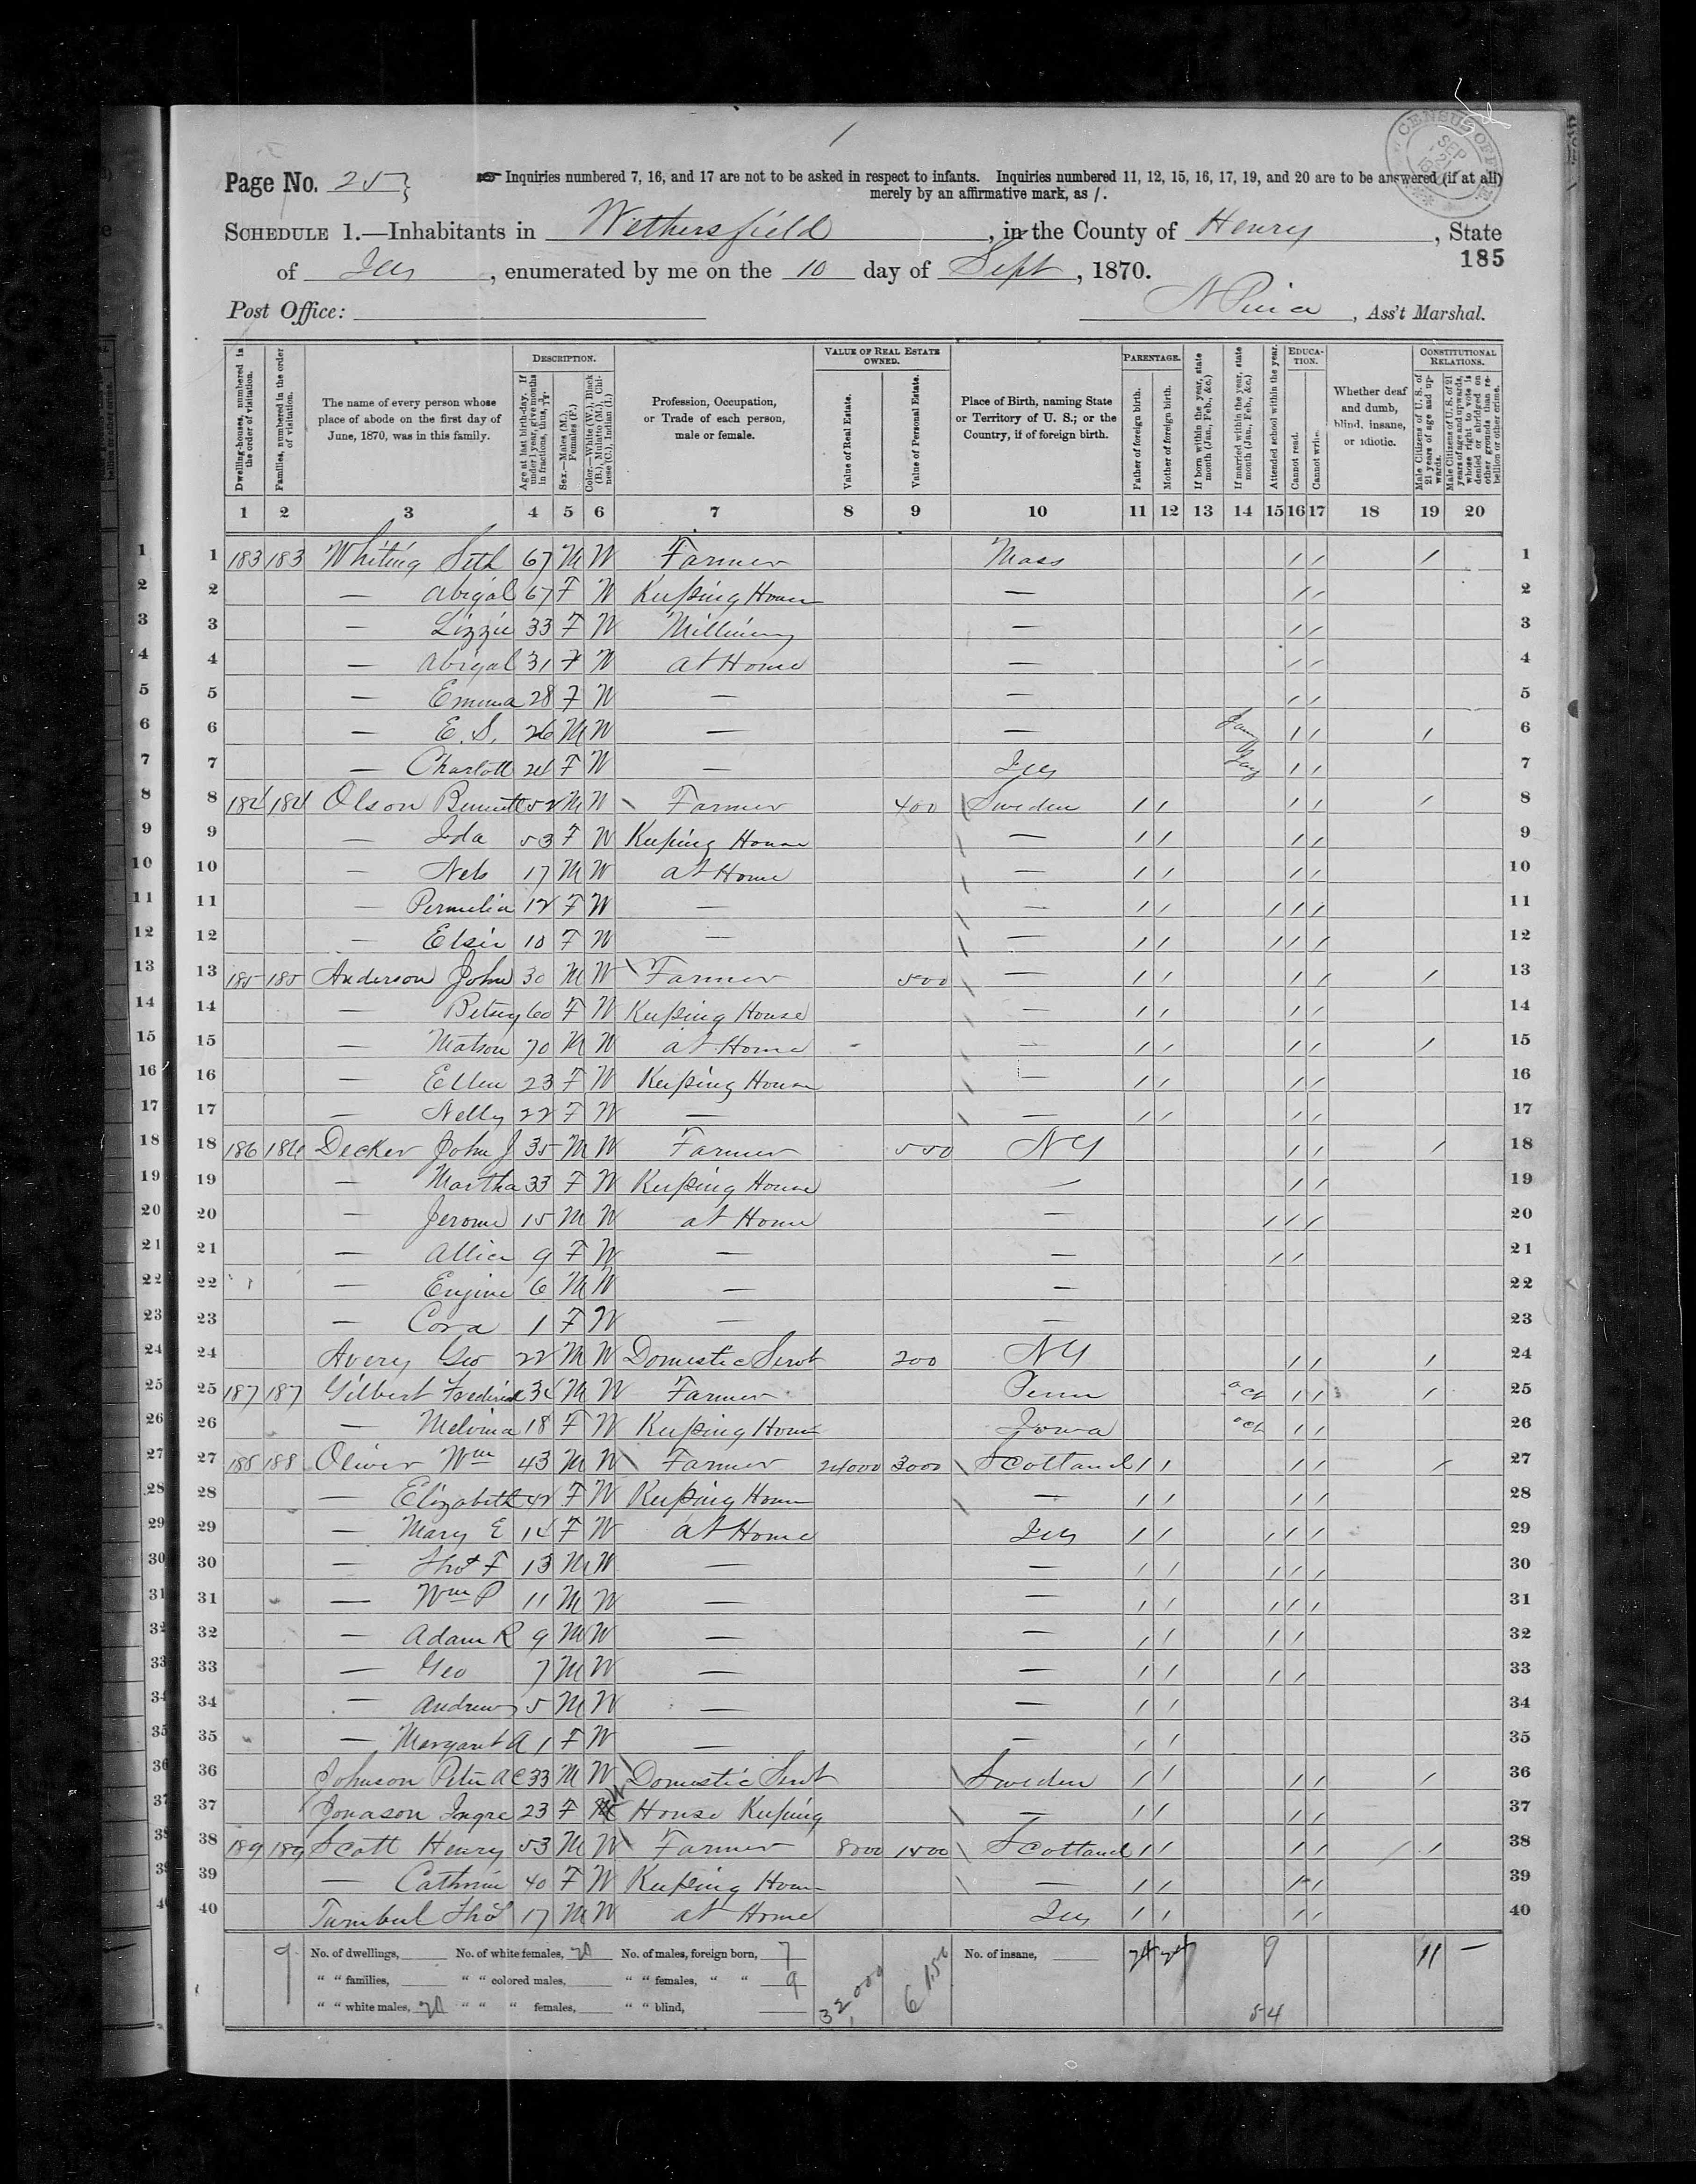 CENSUS OFFICE SEP
Page No. 25
Inquiries numbered 7, 16, and 17 are not to be asked in respect to infants. Inquiries numbered 11, 12, 15, 16, 17, 19, and 20 are to be answered (if at all)
merely by an affirmative mark, as /.
SCHEDULE 1.—Inhabitants in Wethersfield, in the County of Henry, State
185
of Ills, enumerated by me on the 10 day of Sept, 1870.
Post Office:
, Ass't Marshal.
DESCRIPTION.
VALUE OF REAL ESTATE OWNED.
PARENTAGE.
EDUCATION.
CONSTITUTIONAL RELATIONS.
Dwelling-houses, numbered in the order of visitation.
Families, numbered in the order of visitation.
The name of every person whose place of abode on the first day of June, 1870, was in this family.
Age at last birth-day. If under 1 year, give months in fractions, thus, 3/12.
Sex.—Males (M.), Females (F.)
Color.—White (W.), Black (B.), Mulatto (M.), Chinese (C.), Indian (I.)
Profession, Occupation, or Trade of each person, male or female.
Value of Real Estate.
Value of Personal Estate.
Place of Birth, naming State or Territory of U. S.; or the Country, if of foreign birth.
Father of foreign birth.
Mother of foreign birth.
If born within the year, state month (Jan., Feb., &c.)
If married within the year, state month (Jan., Feb., &c.)
Attended school within the year.
Cannot read.
Cannot write.
Whether deaf and dumb, blind, insane, or idiotic.
Male Citizens of U. S. of 21 years of age and upwards.
Male Citizens of U. S. of 21 years of age and upwards, whose right to vote is denied or abridged on other grounds than rebellion or other crime.
1 2 3 4 5 6 7 8 9 10 11 12 13 14 15 16 17 18 19 20
1 183 183 Whiting Seth 67 M W Farmer Mass / / / 1
2 — Abigal 67 F W Keeping House — / / 2
3 — Lizzie 33 F W Millinery — / / 3
4 — Abigal 31 F W at Home — / / 4
5 — Emma 28 F W — — / / 5
6 — E. S. 26 M W — — Jany / / / 6
7 — Charlott 24 F W — Ills Jany / / 7
8 184 184 Olson Bennett 52 M W Farmer 400 Sweden / / / / / 8
9 — Ida 53 F W Keeping House — / / / / 9
10 — Nels 17 M W at Home — / / / / 10
11 — Permelia 12 F W — — / / / / / 11
12 — Elsie 10 F W — — / / / / / 12
13 185 185 Anderson John 30 M W Farmer 500 — / / / / / 13
14 — Betsey 60 F W Keeping House — / / / / 14
15 — Matson 70 M W at Home — / / / / / 15
16 — Ellen 23 F W Keeping House — / / / / 16
17 — Nelly 22 F W — — / / / / 17
18 186 186 Decker John J 35 M W Farmer 550 NY / / / 18
19 — Martha 33 F W Keeping House — / / 19
20 — Jerome 15 M W at Home — / / / 20
21 — Allice 9 F W — — / / 21
22 — Eugine 6 M W — — 22
23 — Cora 1 F W — — 23
24 Avery Geo 22 M W Domestic Servt 200 NY / / / 24
25 187 187 Gilbert Frederick 34 M W Farmer Penn Oct / / / 25
26 — Melvina 18 F W Keeping House Iowa Oct / / 26
27 188 188 Oliver Wm 43 M W Farmer 24000 3000 Scotland / / / / / 27
28 — Elizabeth 42 F W Keeping House — / / / / 28
29 — Mary E 14 F W at Home Ills / / / / / 29
30 — Thos F 13 M W — — / / / / / 30
31 — Wm P 11 M W — — / / / / / 31
32 — Adam R 9 M W — — / / / / 32
33 — Geo 7 M W — — / / / / 33
34 — Andrew 5 M W — — / / 34
35 — Margaret A 1 F W — — / / 35
36 Johnson Peter A C 33 M W Domestic Servt Sweden / / / / / 36
37 Jonason Ingre 23 F W House Keeping — / / / / 37
38 189 189 Scott Henry 53 M W Farmer 8000 1500 Scotland / / / / / 38
39 — Cathrine 40 F W Keeping House — / / / / 39
40 Turnbul Thos 17 M W at Home Ills / / / / 40
9 No. of dwellings, No. of white females, 20 No. of males, foreign born, 7 No. of insane, 24 24 9 11 —
" " families, " " colored males, " " females, " " 9
" " white males, 20 " " " females, " " blind,
32,000 6150 54